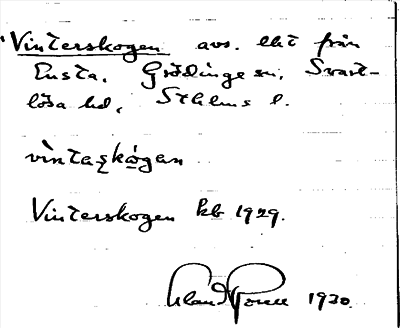 Vinterskogen avs. lht från
Ensta, Grödinge sn, Svart-
lösa hd, Sthlms l.
vìntaşkógan
Vinterskogen kb 1929.
1930.